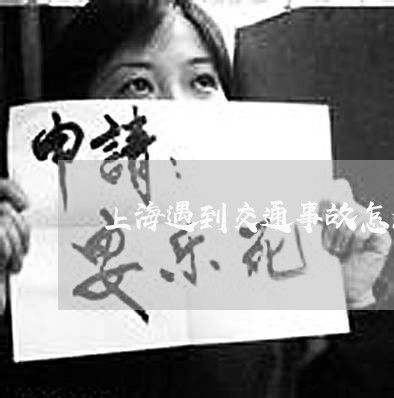 申請：
安乐死
上海遇到交通事故怎